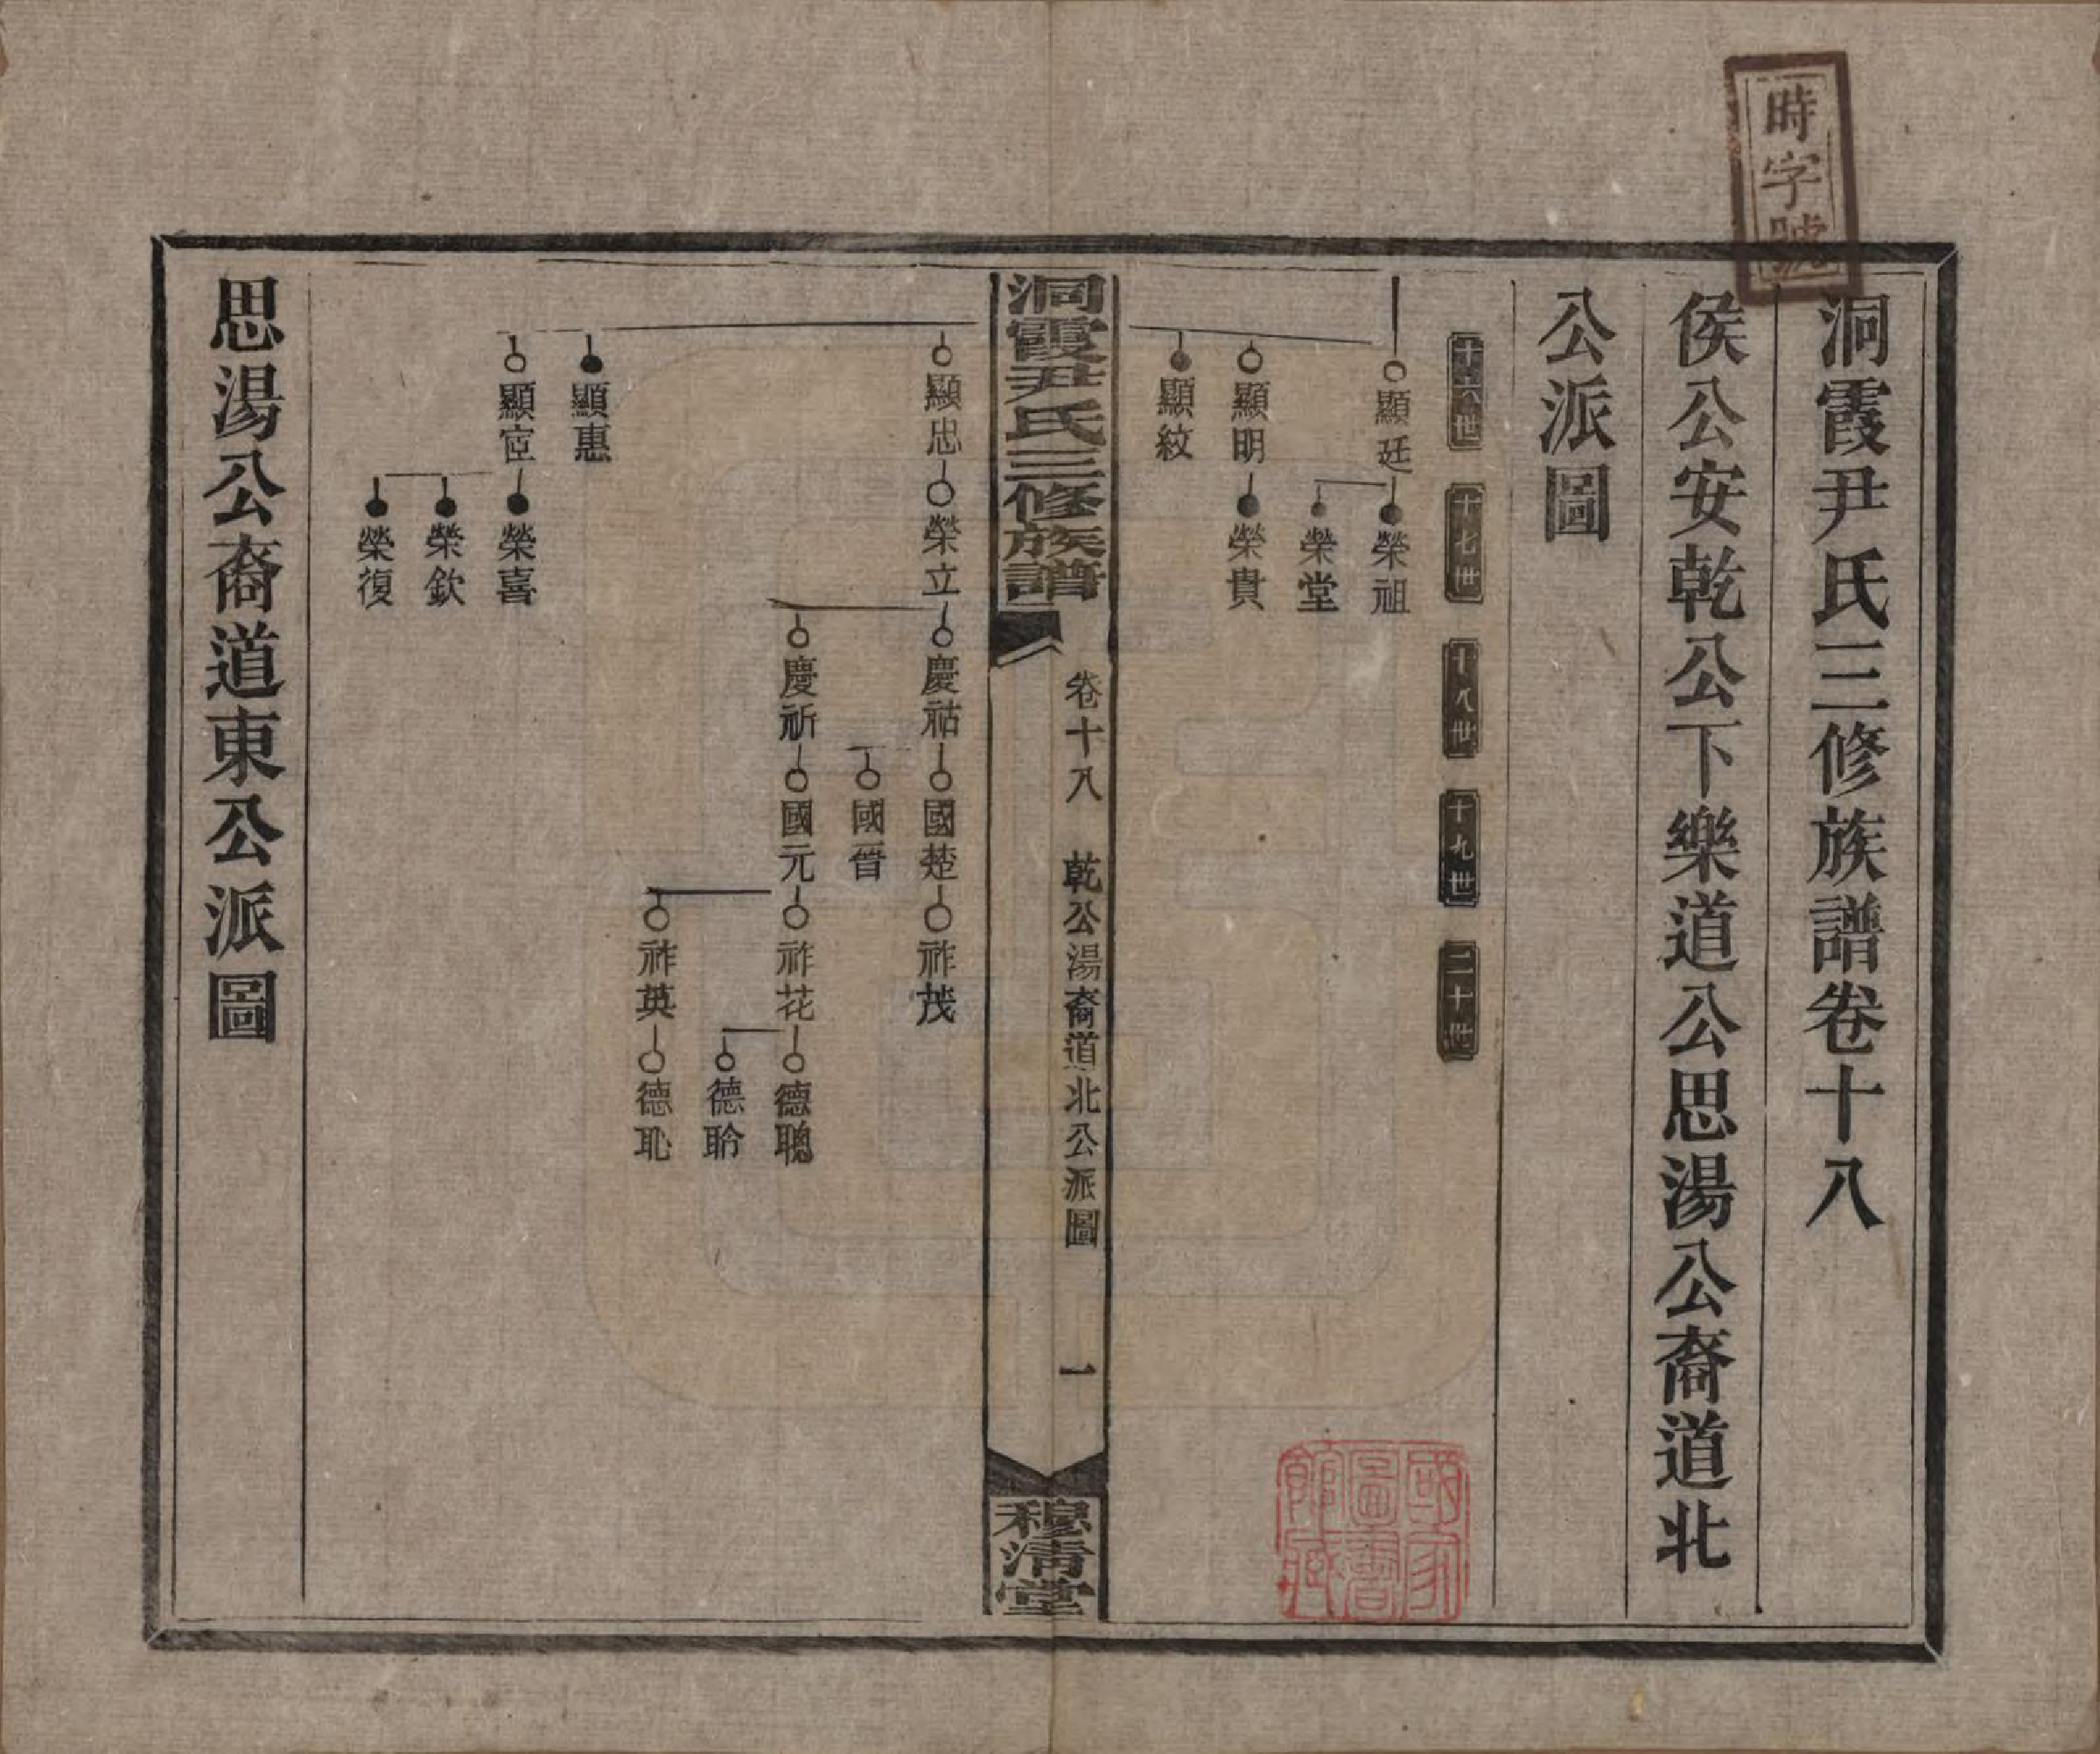 時字號
洞霞尹氏三修族譜卷十八
侯公安乾公下樂道公思湯公裔道北
公派圖
十六世
十七世
十八世
十九世
二十世
顯廷
榮祖
榮堂
顯明
榮貴
顯紋
國家圖書館藏
洞霞尹氏三修族譜
卷十八
乾公湯裔道北公派圖
一
穆清堂
顯忠
榮立
慶祜
國楚
祚茂
國晉
慶祈
國元
祚花
德聰
德聆
祚英
德恥
顯惠
顯宦
榮喜
榮欽
榮復
思湯公裔道東公派圖